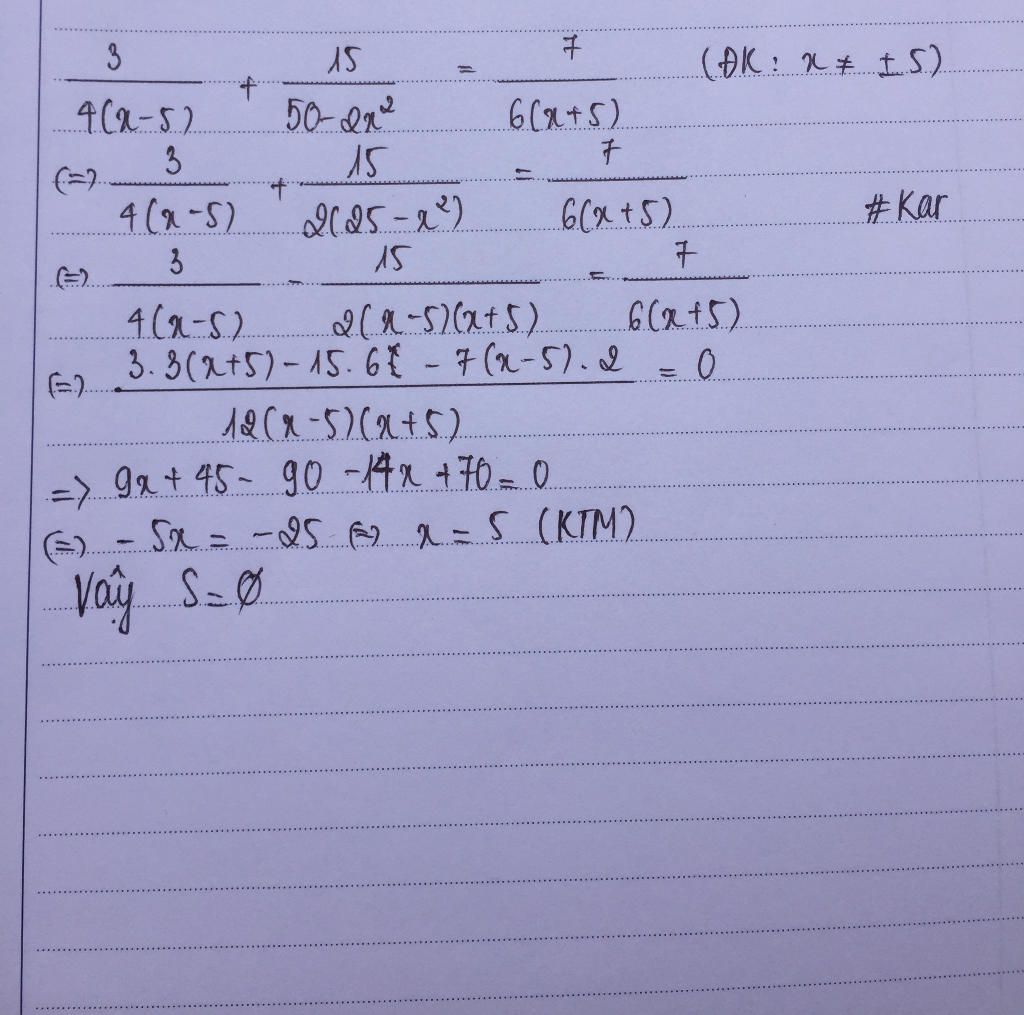 3/4(x-5) + 15/50-2x² = 7/6(x+5) (ĐK: x ≠ ±5)
(=) 3/4(x-5) + 15/2(25-x²) = 7/6(x+5) #Kar
(=) 3/4(x-5) - 15/2(x-5)(x+5) = 7/6(x+5)
(=) 3.3(x+5) - 15.6 - 7(x-5).2/12(x-5)(x+5) = 0
=> 9x + 45 - 90 - 14x + 70 = 0
(=) - 5x = -25 (=) x = 5 (KTM)
Vậy S = Ø